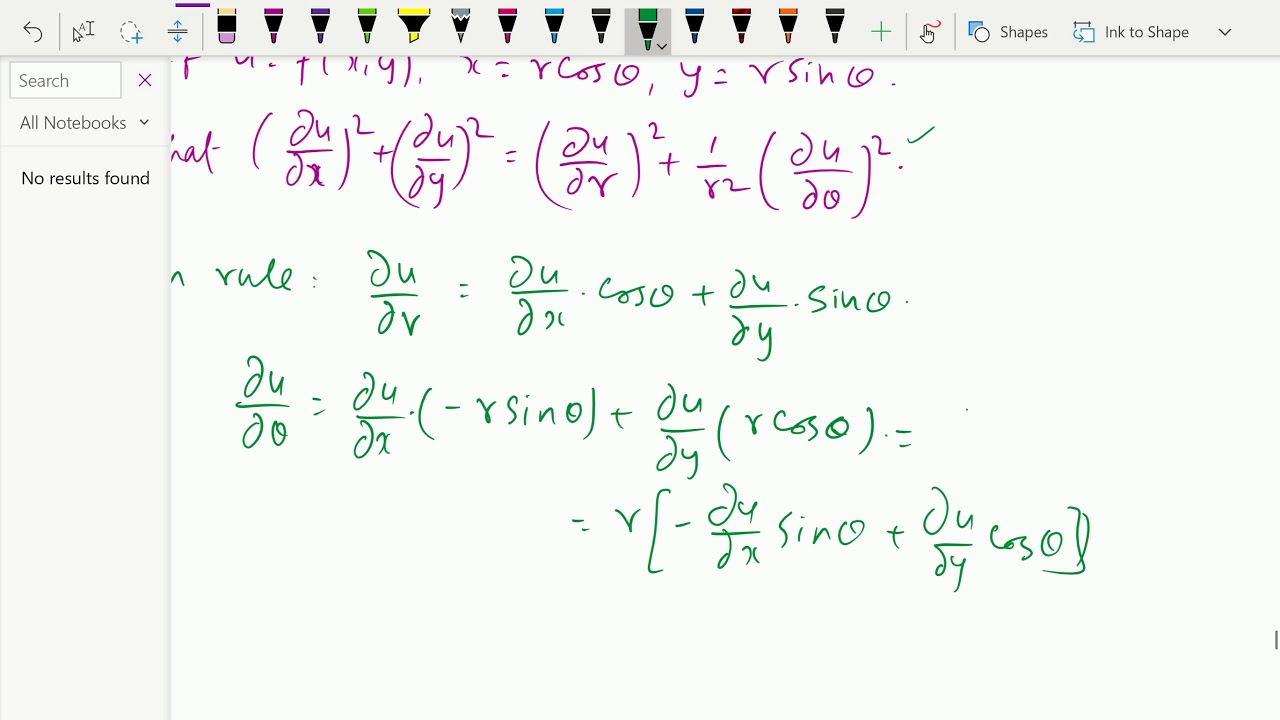 Shapes
Ink to Shape
Search
All Notebooks
No results found
u = f(x,y), x = rcosθ, y = rsinθ.
hat (∂u/∂x)² + (∂u/∂y)² = (∂u/∂r)² + 1/r2 (∂u/∂θ)². ✓
n rule: ∂u/∂r = ∂u/∂x · cosθ + ∂u/∂y · sinθ.
∂u/∂θ = ∂u/∂x · (-rsinθ) + ∂u/∂y (rcosθ). =
= r[-∂u/∂x sinθ + ∂u/∂y cosθ]